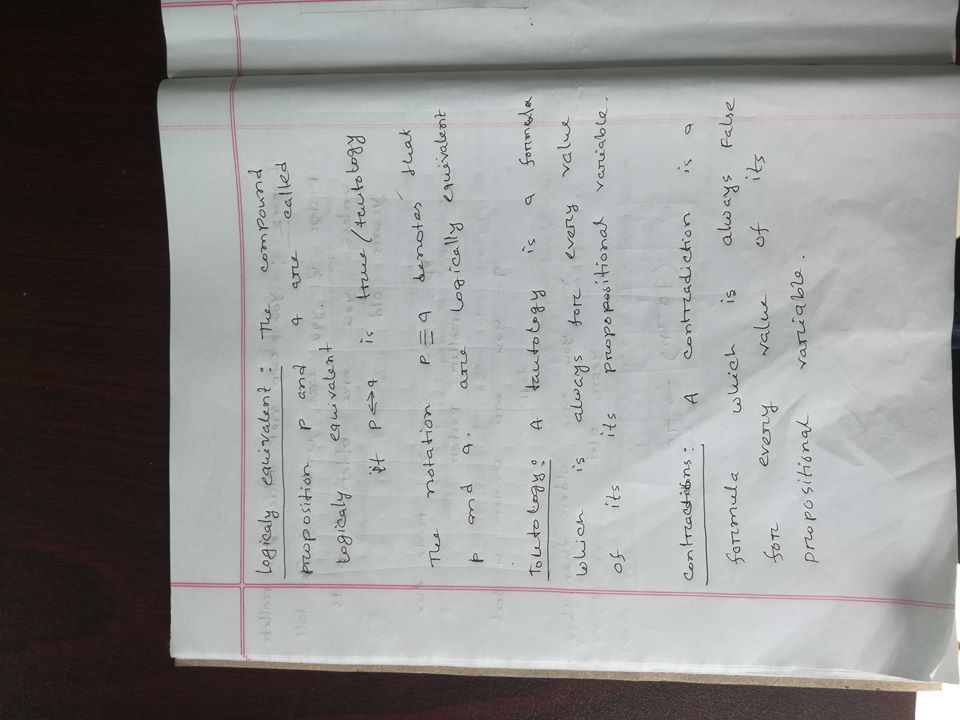 Logicaly equivalent: The compound
proposition p and q are called
logicaly equivalent.
if p↔q is true/tautology
The notation p≡q denotes that
p and q. are logically equivalent
Toutology: A tautology is a formula
which is always for every value
of its its propopositional variable.
: A contradiction is a
formula which is always False
for every value of its
propositional variable.